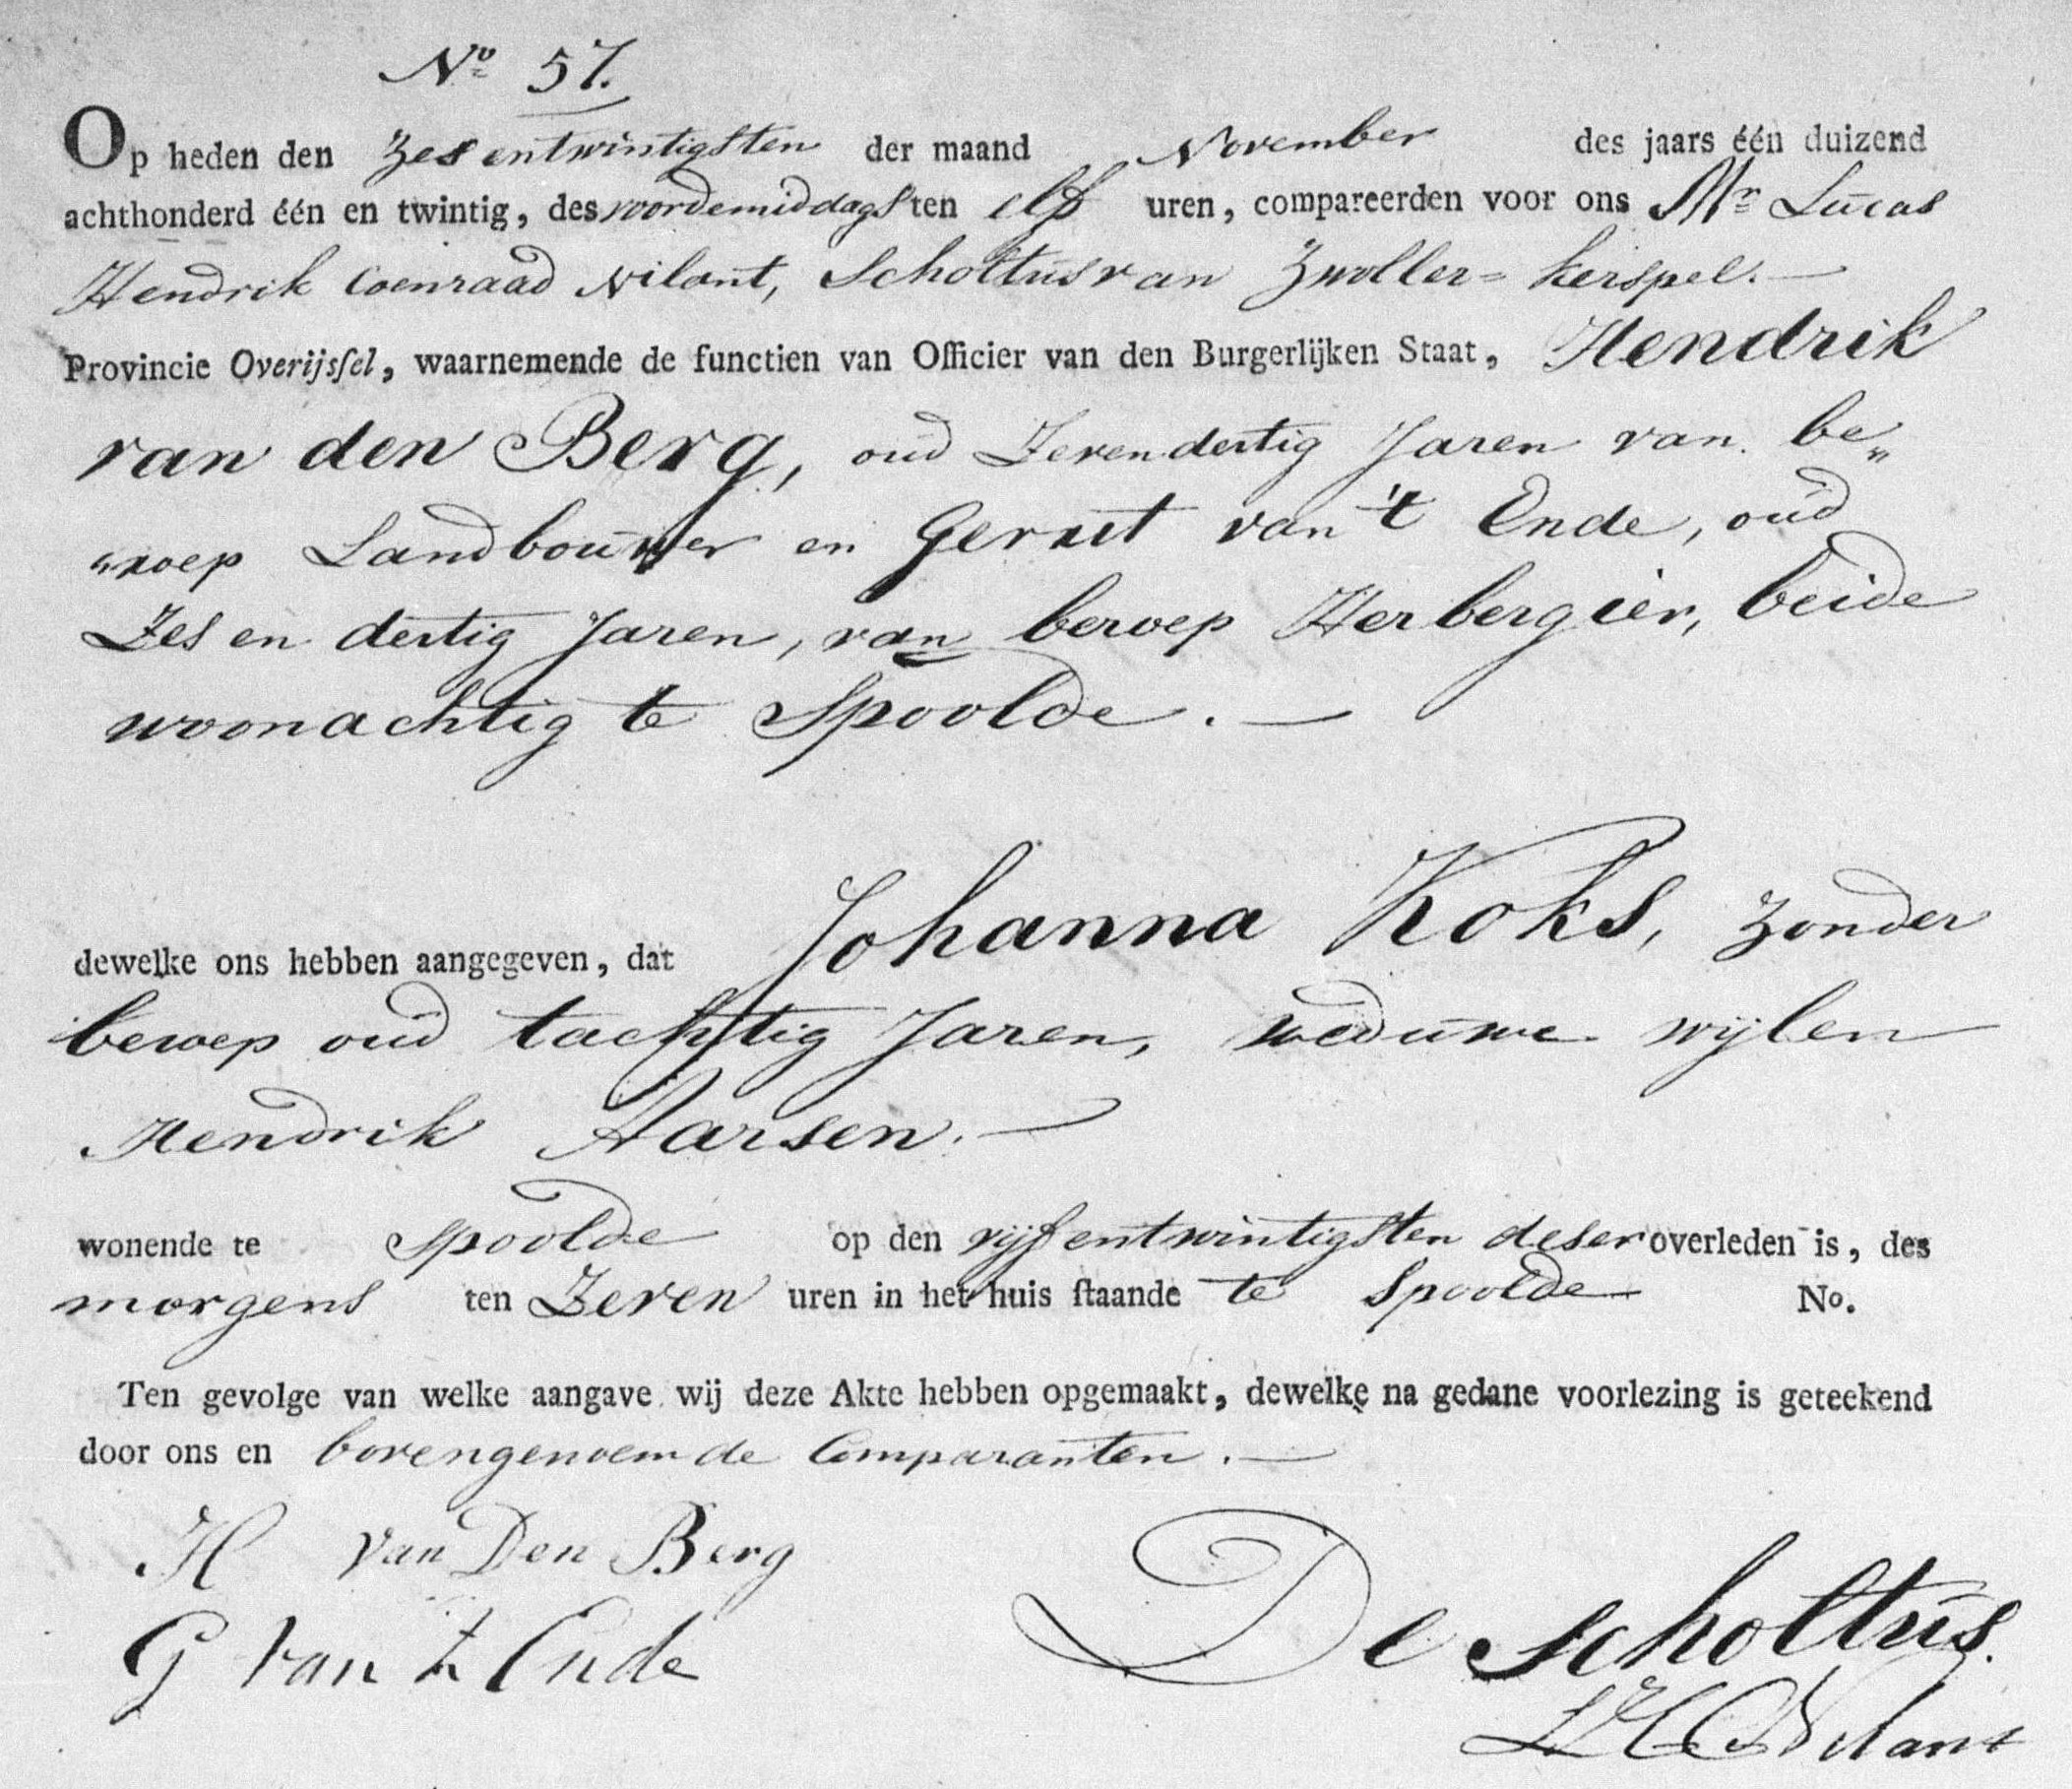 No 57.
Op heden den zesentwintigsten der maand November des jaars één duizend
achthonderd één en twintig, des voordemiddags ten elf uren, compareerden voor ons Mr Lucas
Hendrik Coenraad Nilant, Scholtus van Zwoller= kerspel. —
Provincie Overijsſel, waarnemende de functien van Officier van den Burgerlijken Staat, Hendrik
van den Berg, oud Zevendertig Jaren van be„
„roep Landbouwer en Gerrit van 't Ende, oud
Zes en dertig Jaren, van beroep Herbergier, beide
woonachtig te Spoolde. —
dewelke ons hebben aangegeven, dat Johanna Koks, zonder
beroep oud tachtig Jaren, weduwe wijlen
Hendrik Aarsen. —
wonende te Spoolde op den vijfentwintigsten deser overleden is, des
morgens ten Zeven uren in het huis ſtaande te Spoolde No.
Ten gevolge van welke aangave wij deze Akte hebben opgemaakt, dewelke na gedane voorlezing is geteekend
door ons en bovengenoemde Comparanten. —
H van Den Berg
G van t Ende
De Scholtus.
LHCNilant